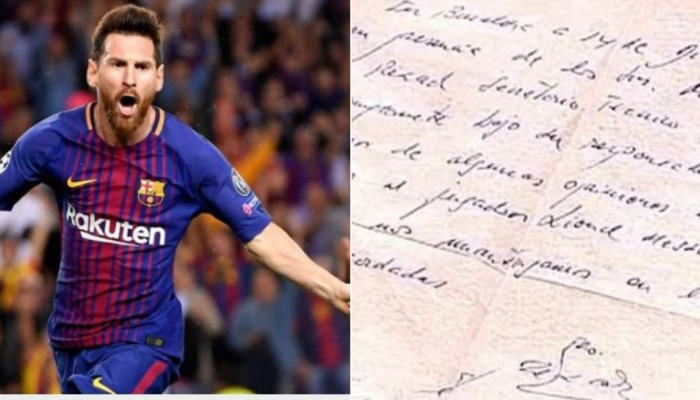 Rakuten
En Barcelona a 14 de
en presencia de los Srs.
Rexach Secretario Tecnico
mpromete bajo su responsa
de algunas opiniones
al jugador Lionel Mess
nos mantengamos en l
cordadas